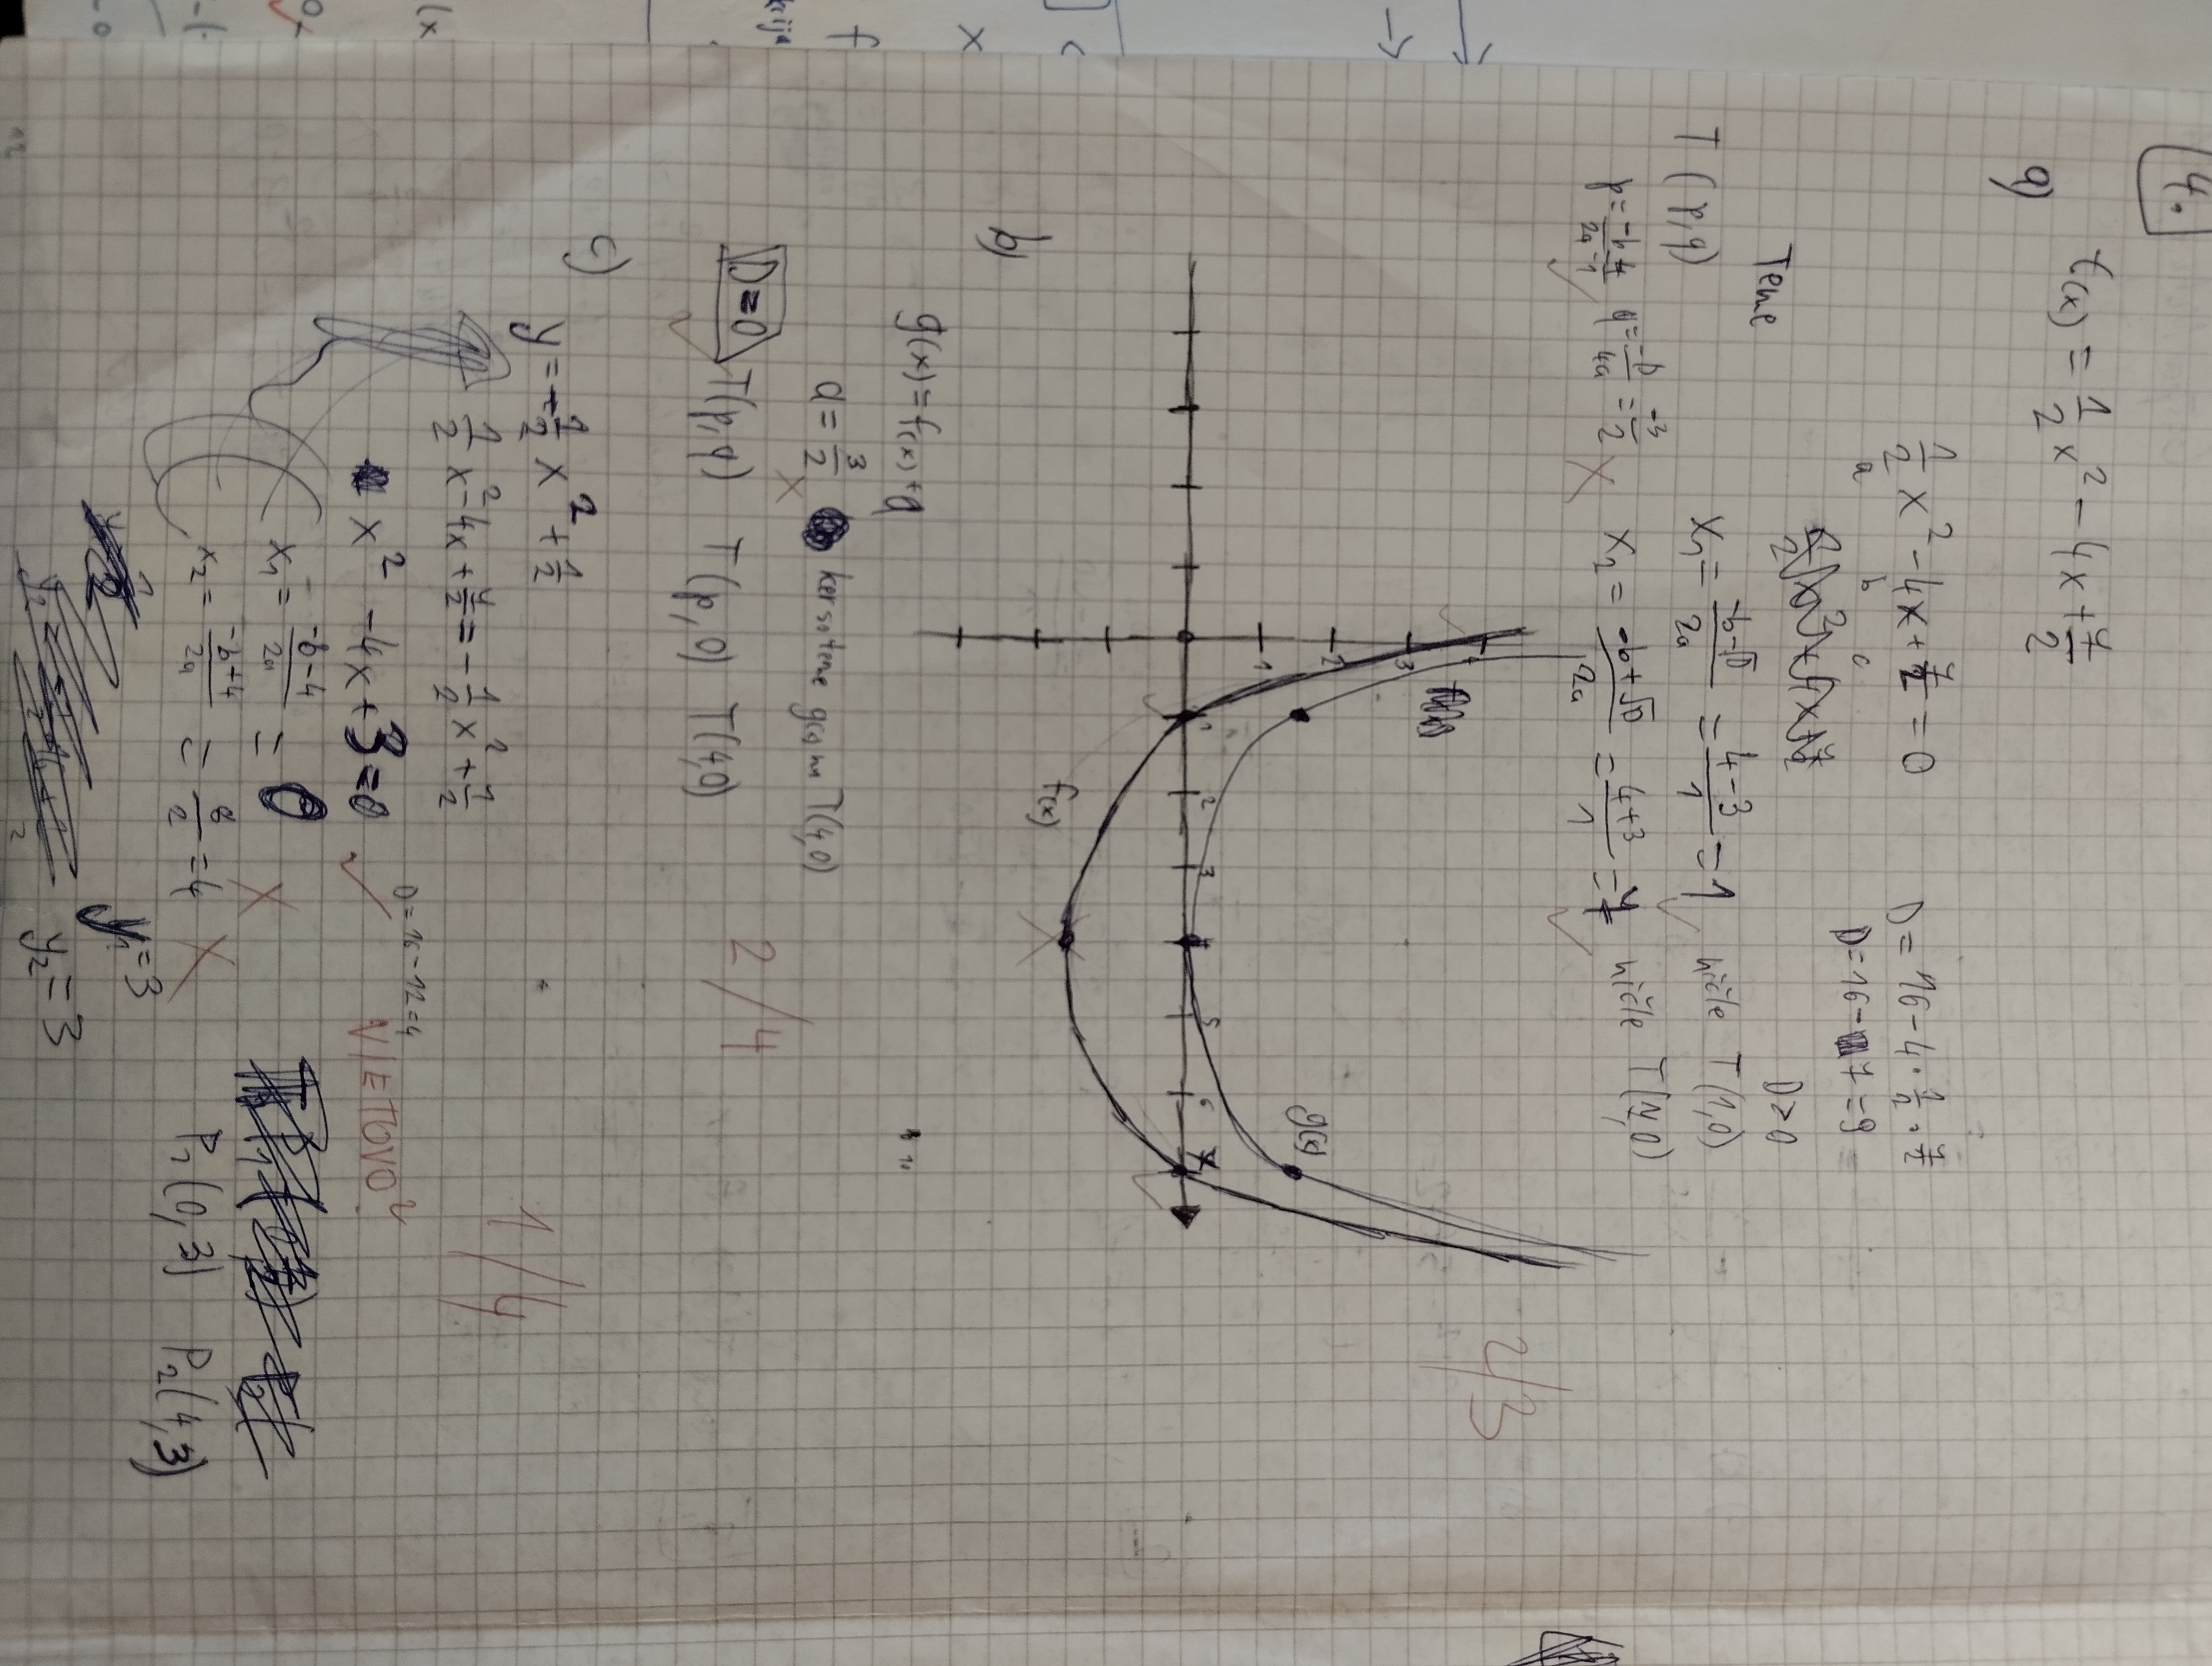 4.
f(x) = 1/2 x² - 4x + 7/2
a)
1/2 x² - 4x + 7/2 = 0
a b c
D = 16 - 4 · 1/2 · 7/2
D = 16 - 7 = 9
D > 0
Teme
T (p, q)
p = -b/2a 4/1
q = -D/4a = -3/2
x₁ = -b-√D/2a = 4-3/1 = 1 ničle T(1,0)
x₂ = -b+√D/2a = 4+3/1 = 7 ničle T(7,0)
2/3
4
3
2
1
g(x)
1 2 3 4 5 6 7
f(x)
b)
g(x) = f(x) + a
a = 3/2 ker so teme g(x) na T(4,0)
2/4
D=0 T(p, q) T(p, 0) T(4,0)
c)
y = -1/2 x² + 1/2
1/4
1/2 x² - 4x + 7/2 = -1/2 x² + 1/2
D = 16 - 12 = 4
x² - 4x + 3 = 0
VIETOVO?
x₁ = -b-4/2a = 0
x₂ = -b+4/2a = 8/2 = 4
P₁(0,3) P₂(4,3)
y₁ = 3
y₂ = 3